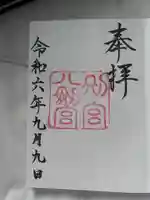 奉拝
八剱宮
令和六年九月九日